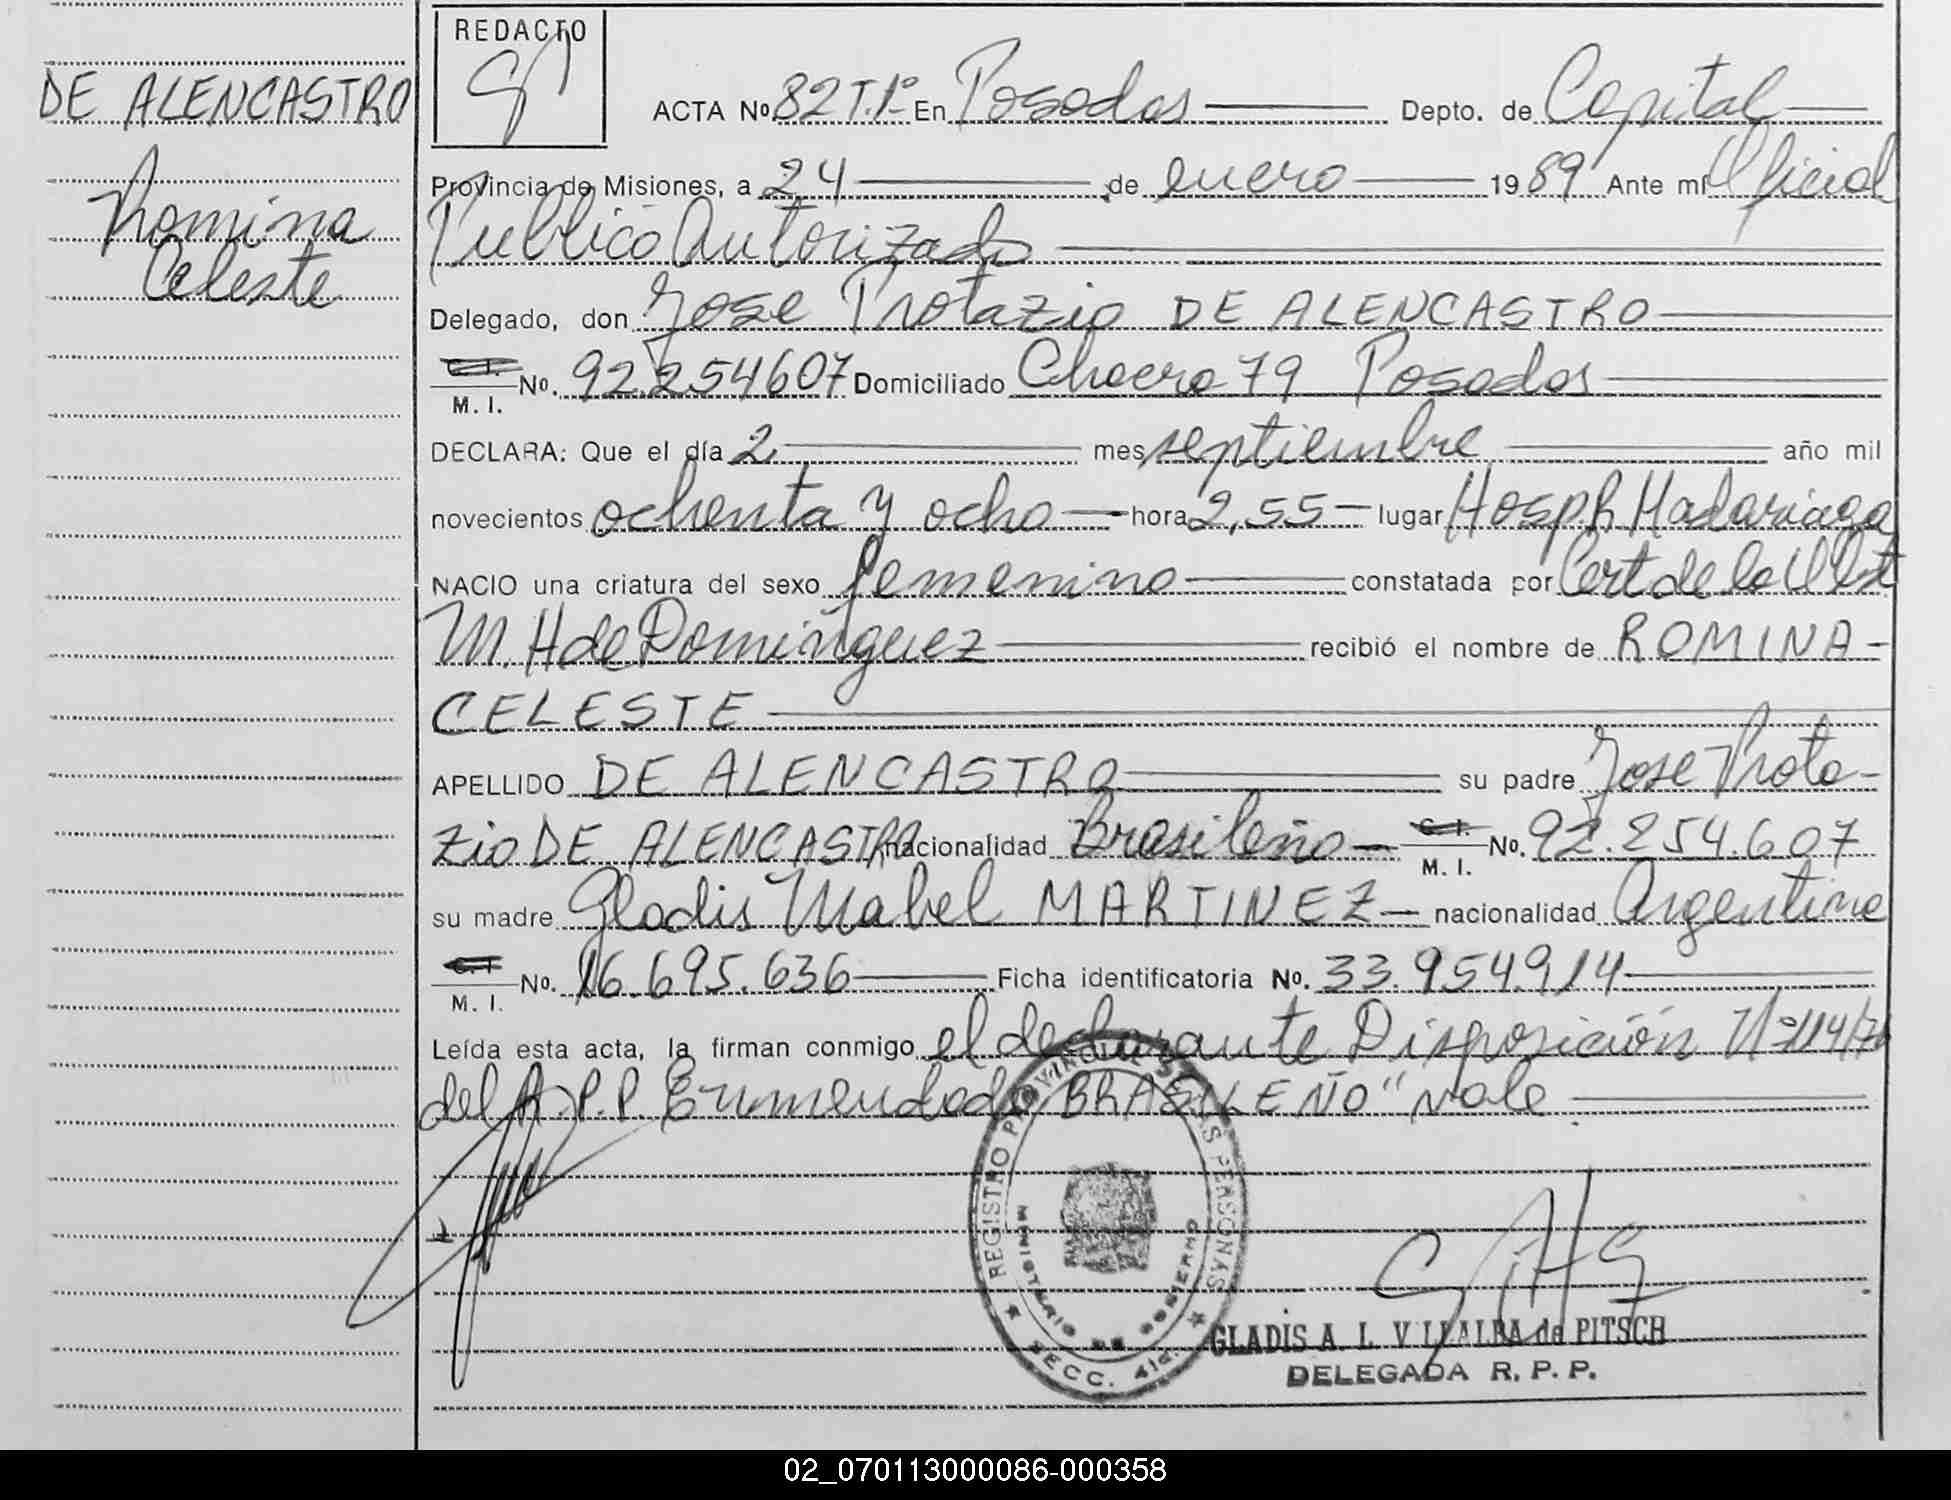 DE ALENCASTRO
Romina
Celeste
REDACTO
ACTA Nº 82 T.1º En Posadas Depto. de Capital
Provincia de Misiones, a 24 de enero 1989 Ante mí Oficial
Publico Autorizado
Delegado, don Jose Protazio DE ALENCASTRO
C. I.
M. I. No. 92.254607 Domiciliado Chacra 79 Posadas
DECLARA: Que el día 2 mes septiembre año mil
novecientos ochenta y ocho hora 2,55 lugar Hosp. R. Madariaga
NACIO una criatura del sexo femenino constatada por Cert de la Obst
M. H de Dominguez recibió el nombre de ROMINA
CELESTE
APELLIDO DE ALENCASTRO su padre Jose Prota-
zio DE ALENCASTRO nacionalidad Brasileño C. I.
M. I. No. 92.254.607
su madre Gladis Mabel MARTINEZ nacionalidad Argentina
C. I.
M. I. No. 16.695.636 Ficha identificatoria No. 33.954.914
Leída esta acta, la firman conmigo el declarante Disposición Nº 114/
del R.P.P. Enmendado "BRASILEÑO" vale
REGISTRO PROVINCIAL DE LAS PERSONAS
MINISTERIO DE GOBIERNO
SECC. 4ta.
GLADIS A. L. VILLALBA de PITSCH
DELEGADA R. P. P.
02_070113000086-000358